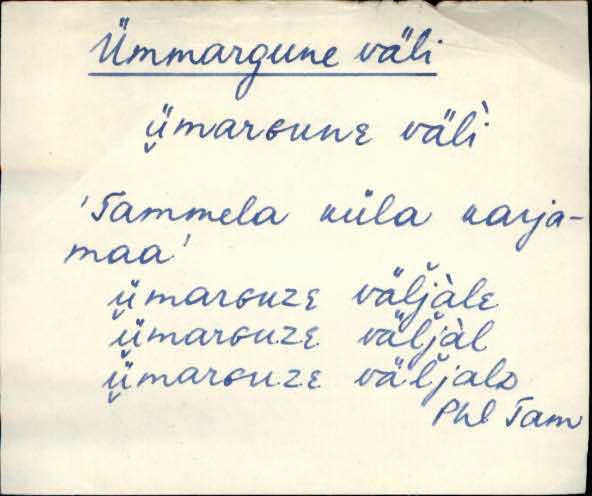 Ümmargune väli
ü̬marɢune välì
'Tammela küla karja-
maa'
ü̬marɢuzᴇ väl̆jàlᴇ
ü̬marɢuzᴇ väl̆jàl
ü̬marɢuzᴇ väl̆jalᴅ
Phl Tam